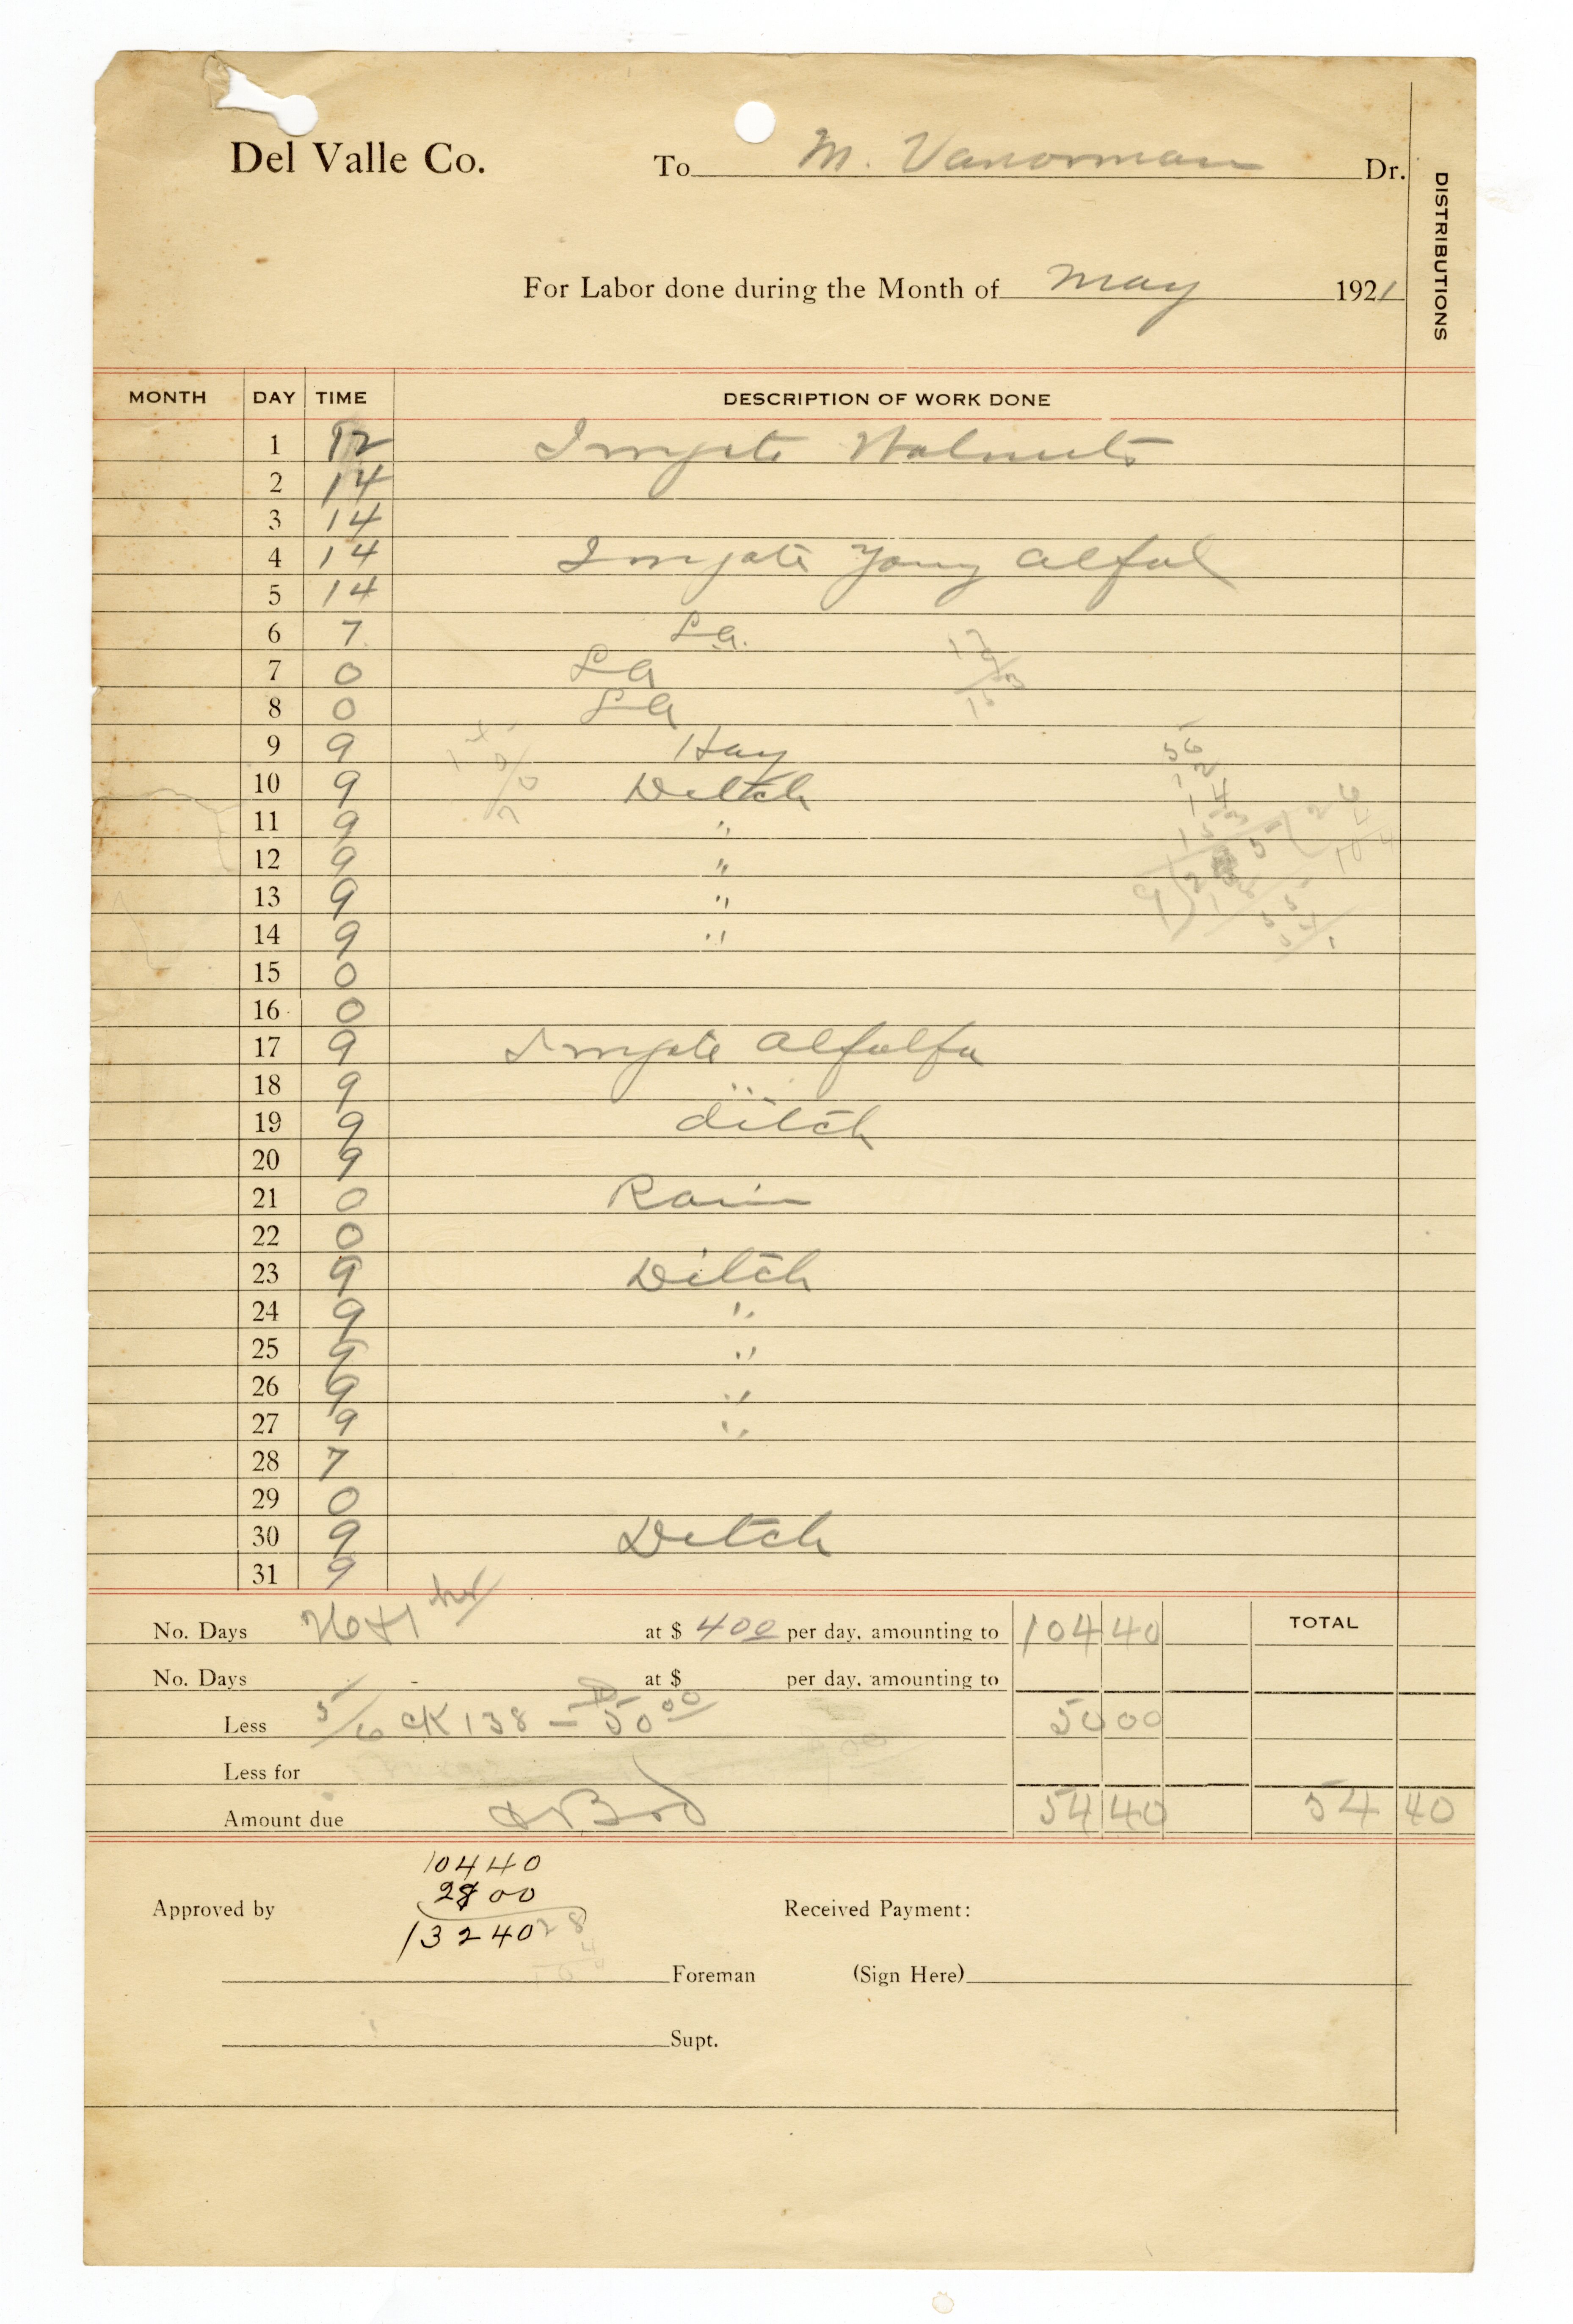 Del Valle Co. To M. Vanorman Dr.
DISTRIBUTIONS
For Labor done during the Month of May 1921
MONTH DAY TIME DESCRIPTION OF WORK DONE
1 12 Irrigate Walnuts
2 14
3 14
4 14 Irrigate young alfal
5 14
6 7 La.
7 0 La
8 0 La
9 9 Hay
10 9 Ditch
11 9 "
12 9 "
13 9 "
14 9 "
15 0
16 0
17 9 Irrigate alfalfa
18 9 "
19 9 ditch
20 9
21 0 Rain
22 0
23 9 Ditch
24 9 "
25 9 "
26 9 "
27 9 "
28 7
29 0
30 9 Ditch
31 9
No. Days 26+1 hr at $ 400 per day, amounting to 104 40 TOTAL
No. Days at $ per day, amounting to
Less 5/6 CK 138 — 50 00 50 00
Less for
Amount due 54 40 54 40
10440
2800
13240
Approved by Received Payment:
Foreman (Sign Here)
Supt.